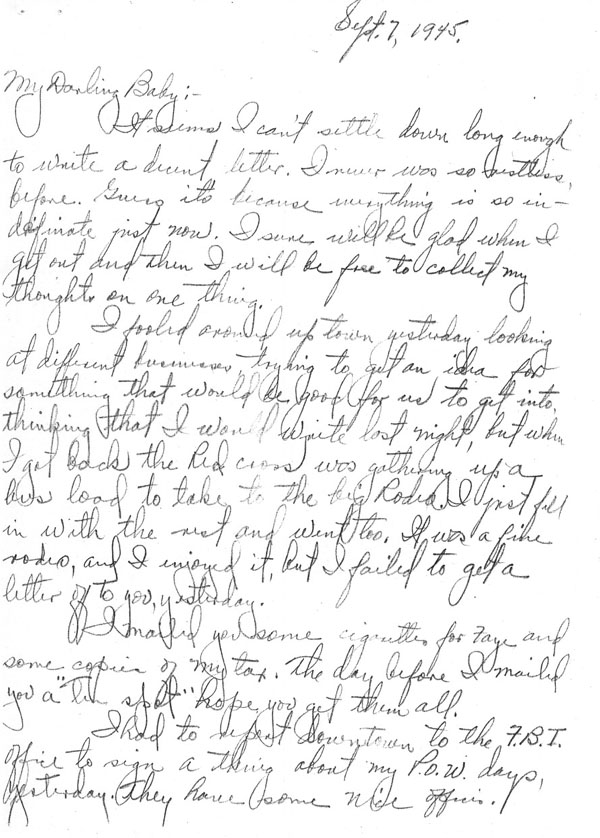 Sept. 7, 1945.
My Darling Baby;-
It seems I can't settle down long enough
to write a decent letter. I never was so restless,
before. Guess it's because everything is so in-
definate just now. I sure will be glad when I
get out and then I will be free to collect my
thoughts on one thing.
I fooled around up town yesterday looking
at different businesses, trying to get an idea for
something that would be good for us to get into,
thinking that I would write last night, but when
I got back the Red cross was gathering up a
bus load to take to the big Rodeo. I just fell
in with the rest and went too. It was a fine
rodeo, and I enjoyed it, but I failed to get a
letter off to you, yesterday.
I mailed you some cigarettes for Faye and
some copies of my tax. The day before I mailed
you a "ten spot" hope you get them all.
I had to report downtown to the F.B.I.
office to sign a thing about my P.O.W. days,
yesterday. They have some nice offices.